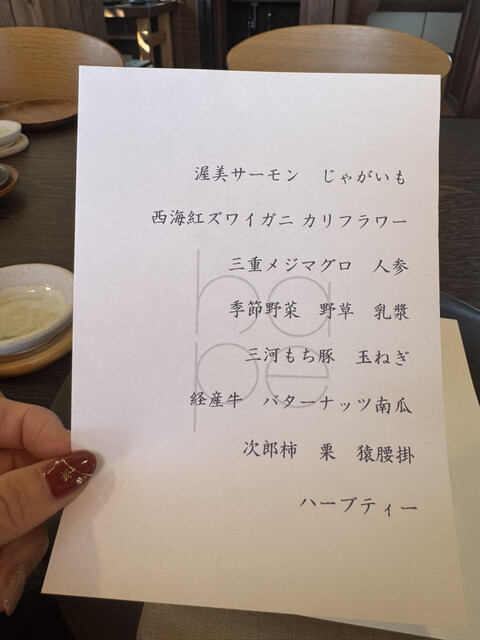 渥美サーモン　じゃがいも
西海紅ズワイガニ カリフラワー
三重メジマグロ　人参
季節野菜　野草　乳漿
三河もち豚　玉ねぎ
経産牛　バターナッツ南瓜
次郎柿　栗　猿腰掛
ハーブティー
ha
pe